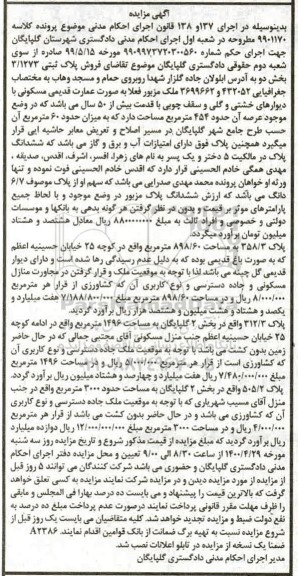 آگهی مزایده
بدینوسیله در اجرای ۱۳۷و ۱۳۸ قانون اجرای احکام مدنی موضوع پرونده کلاسه
۹۹۰۱۱۷۰ مطروحه در شعبه اول اجرای احکام مدنی دادگستری شهرستان گلپایگان
جهت اجرای حکم شماره ۹۹۰۹۹۷۳۷۲۰۳۰۰۵۶۰ مورخه ۹۹/۵/۱۵ صادره از سوی
شعبه دوم حقوقی دادگستری گلپایگان موضوع تقاضای فروش پلاک ثبتی ۳/۱۲۷۳
بخش دو به آدرس ابلولان جاده گلزار شهدا روبروی حمام و مسجد وهاب به مختصات
جغرافیایی ۴۳۲۰۵۲ و ۳۶۹۹۶۶۲ ملک مزبور فعلا به صورت عمارت قدیمی مسکونی با
دیوارهای خشتی و گلی و سقف چوبی با قدمت بیش از ۵۰ سال می باشد که در وضع
موجود عرصه آن حدود ۴۵۴ مترمربع مساحت دارد که به میزان حدود ۶۰ مترمربع آن
حسب طرح جامع شهر گلپایگان در مسیر اصلاح و تعریض معابر حاشیه ایی قرار
میگیرد همچنین پلاک فوق دارای امتیازات آب و برق و گاز می باشد که ششدانگ
پلاک در مالکیت ۵ دختر و یک پسر به نام های زهرا، افسر، اشرف، اقدس، صدیقه ،
مهدی همگی خادم الحسینی قرار دارد که اقدس خادم الحسینی فوت نموده و تنها
ورثه او خواهان پرونده محمد مهدی صدرایی می باشد که سهم او از پلاک موصوف ۶/۷
دانگ می باشد که ارزش ششدانگ پلاک مزبور در وضع موجود و با لحاظ جمیع
پارامترهای موثر بر قیمت و بدون در نظر گرفتن هر گونه بدهی به بانکها و موسسات
دولتی و خصوصی و افراد ثالث به مبلغ ۸۸۰۰۰۰۰۰۰۰ ریال معادل هشتصد و هشتاد
میلیون تومان برآورد میگردد.
پلاک ۳۵۸/۳ به مساحت ۸۹۸/۶۰ مترمربع واقع در کوچه ۲۵ خیابان حسینیه اعظم
که به صورت باغ قدیمی بوده که به دلیل عدم رسیدگی رها شده است و دارای دیوار
قدیمی گل چینه می باشد لذا با توجه به موقعیت ملک و قرار گرفتن در مجاورت منازل
مسکونی و جاده دسترسی و نوع کاربری آن که کشاورزی از قرار هر مترمربع
۸/۰۰۰/۰۰۰ ریال و در مساحت ۸۹۸/۶۰ مترمربع مبلغ ۷/۱۸۸/۸۰۰/۰۰۰ هفت میلیارد و
یکصد و هشتاد و هشت میلیون و هشتصد هزار ریال برآورد گردید.
پلاک ۳۱۲/۳ واقع در بخش ۲ گلپایگان به مساحت ۱۴۹۶ مترمربع واقع در ادامه کوچه
۲۵ خیابان حسینیه اعظم جنب منزل مسکونی آقای مجتبی جمالی که در حال حاضر
زمین بدون کشت می باشد با توجه به موقعیت ملک جاده دسترسی و نوع کاربری آن
که کشاورزی است از قرار هر مترمربع ۵/۰۰۰/۰۰۰ ریال و در مساحت ۱۴۹۶ مترمربع
مبلغ ۷/۴۸۰/۰۰۰/۰۰۰ ریال هفت میلیارد و چهارصد و هشتاد میلیون ریال برآورد گردد.
پلاک ۵۰۵/۲ واقع در بخش ۲ گلپایگان به مساحت حدود ۳۰۰۰ مترمربع واقع در جنب
منزل آقای مسیب شهریاری که با توجه به موقعیت ملک جاده دسترسی و نوع کاربری
آن که کشاورزی می باشد و در حال حاضر بدون کشت می باشد از قرار هر مترمربع
۴/۰۰۰/۰۰۰ ریال و در مساحت ۳۰۰۰ مترمربع مبلغ ۱۲/۰۰۰/۰۰۰/۰۰۰ ریال دوازده میلیارد
ریال برآورد گردید که مبلغ مزایده از قیمت مذکور شروع و تاریخ مزایده روز سه شنبه
مورخه ۱۴۰۰/۴/۲۹ از ساعت ۸/۳۰ الی ۹/۰۰ تعیین و محل مزایده دفتر اجرای احکام
مدنی دادگستری گلپایگان و حضوری می باشد شرکت کنندگان می توانند ۵ روز قبل
از مزایده از مورد مزایده دیدن و در مزایده شرکت نمایند مزایده به کسی تعلق خواهد
گرفت که بالاترین قیمت را پیشنهاد و می بایست ده درصد بهارا فی المجلس و مابقی
را ظرف مهلت مقرر قانونی پرداخت نمایند درصورت عدم پرداخت مبلغ ده درصد به
نفع دولت ضبط و مزایده تجدید خواهد شد. کلیه متقاضیان می بایست یک روز قبل از
شروع مزایده نسبت به تهیه برگ ضمانت از بانک قوامین اقدام نمایند. A۲۳۸۶
ضمنا یک نسخه از مزایده در تابلو اعلانات نصب شد.
مدیر اجرای احکام مدنی دادگستری گلپایگان